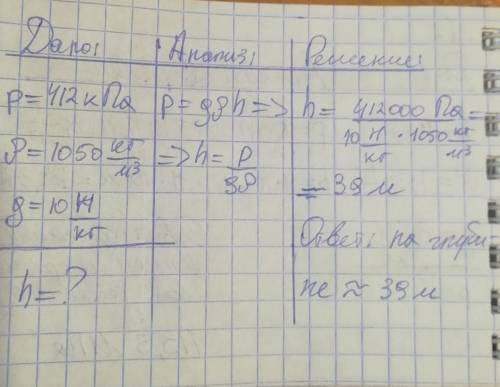 Дано:
p=412кПа
ρ=1050 кг/м3
g=10 Н/кг
h=?
Анализ:
p=gρh=>
=>h= p/gρ
Решение:
h= 412000 Па / 10 Н/кг · 1050 кг/м3 =
= 39 м
Ответ: на глуби-
не ≈ 39 м